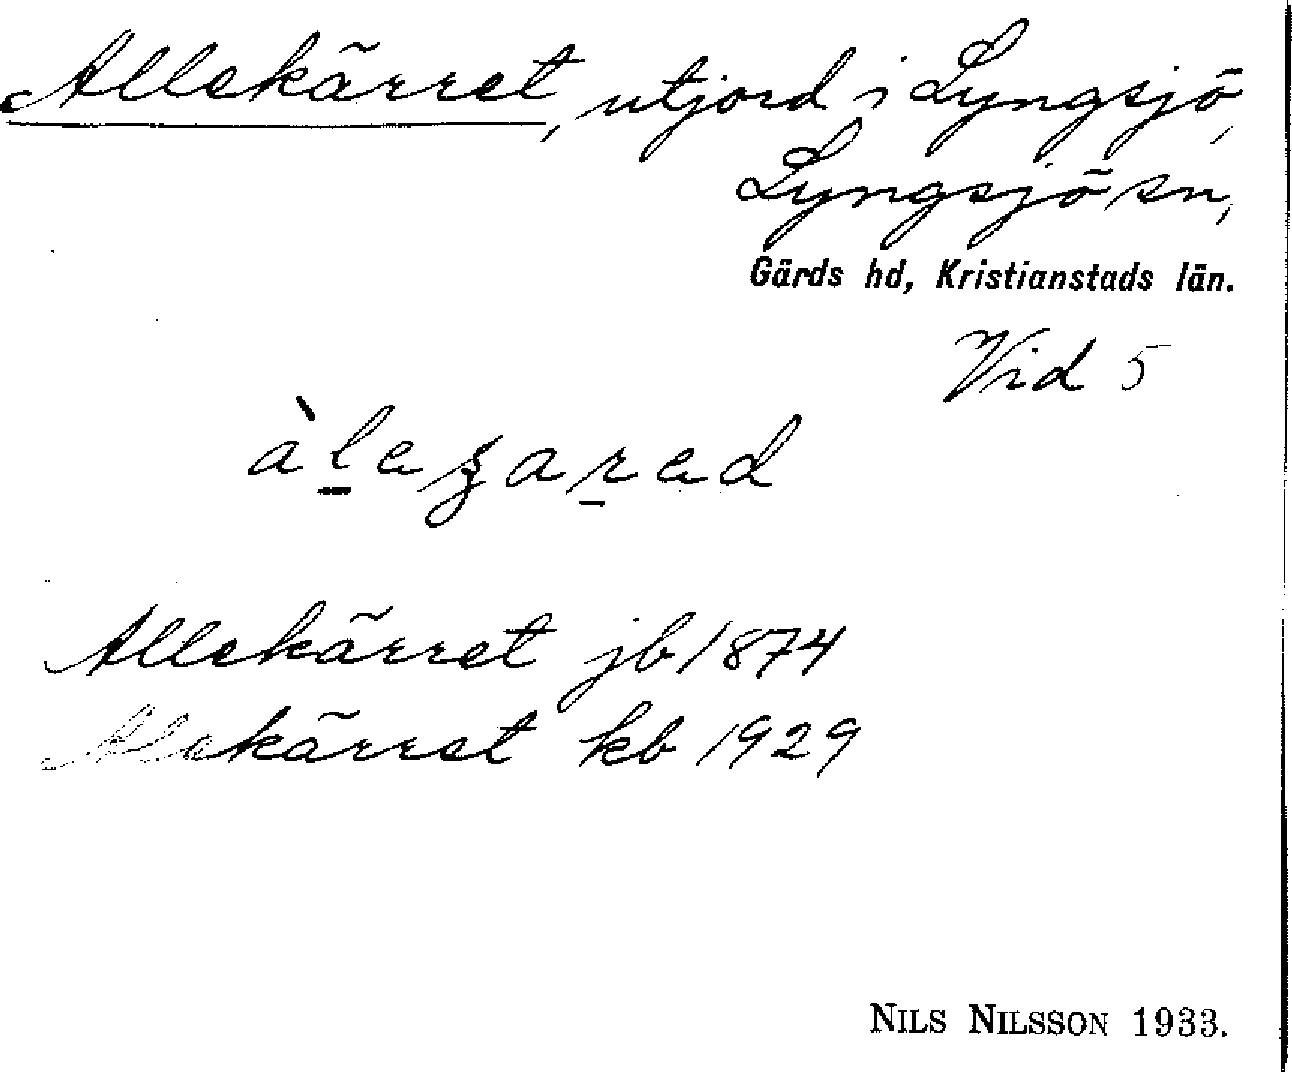 Allekärret, utjord i Lyngsjö,
Lyngsjö sn,
Gärds hd, Kristianstads län.
Vid 5
Allekärret jb 1874
Alekärret kb 1929
NILS NILSSON 1933.